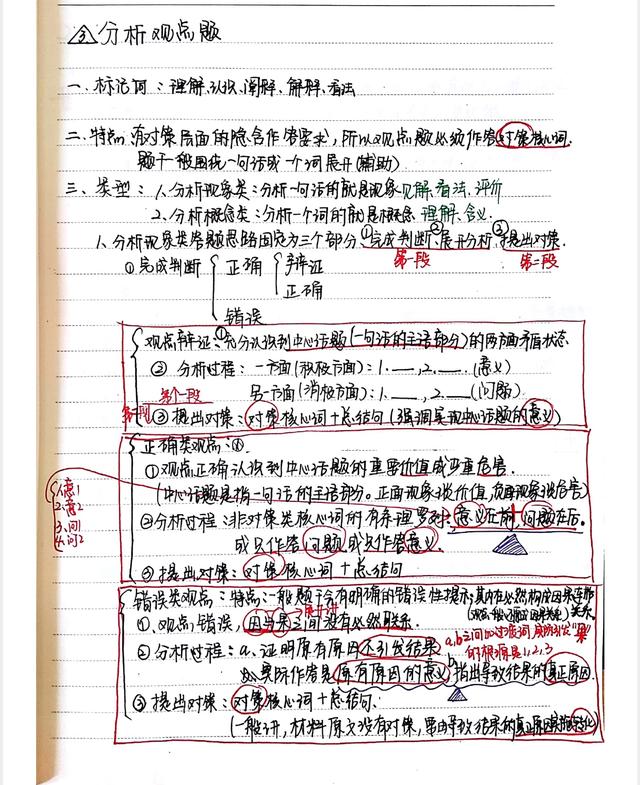 ③ 分析观点题
一、标记词：理解、认识、阐释、解释、看法
二、特点：有对策层面的隐含作答要求，所以观点题必须作答对策核心词.
题干一般围绕一句话或一个词展开(辅助)
三、类型：1.分析现象类：分析一句话的就是现象 见解、看法、评价
2.分析概念类：分析一个词的就是概念 理解、含义.
1.分析现象类答题思路固定为三个部分①完成判断、②展开分析、③提出对策.
第一段 第二段
①完成判断 正确 辩证
正确
错误
观点辩证：①充分认识到中心话题(一句话的主语部分)的两方面矛盾状态
② 分析过程：一方面(积极方面)：1.__，2.__(意义)
另一方面(消极方面)：1.__，2.__(问题)
③ 提出对策：对策核心词+总结句(强调实现中心话题的意义)
正确类观点：
①观点正确认识到中心话题的重要价值或严重危害.
(中心话题是指一句话的主语部分。正面现象谈价值，负面现象谈危害)
1.意1
2.意2
3.问1
4.问2
②分析过程：非对策类核心词的有条理罗列：意义在前，问题在后。
或只作答问题或只作答意义.
③提出对策：对策核心词+总结句
错误类观点：特点：一般题干会有明确的错误性提示；
展开讲
①、观点错误，因与果之间没有必然联系.
②分析过程：a、证明原有原因不引发结果
实际作答是原有原因的意义 b指出导致结果的真正原因.
a,b之间加过渡词,实际引发"果"
的根源是1,2,3
③提出对策：对策核心词+总结句.
(一般讲，材料原文没有对策，要由导致结果的真正原因